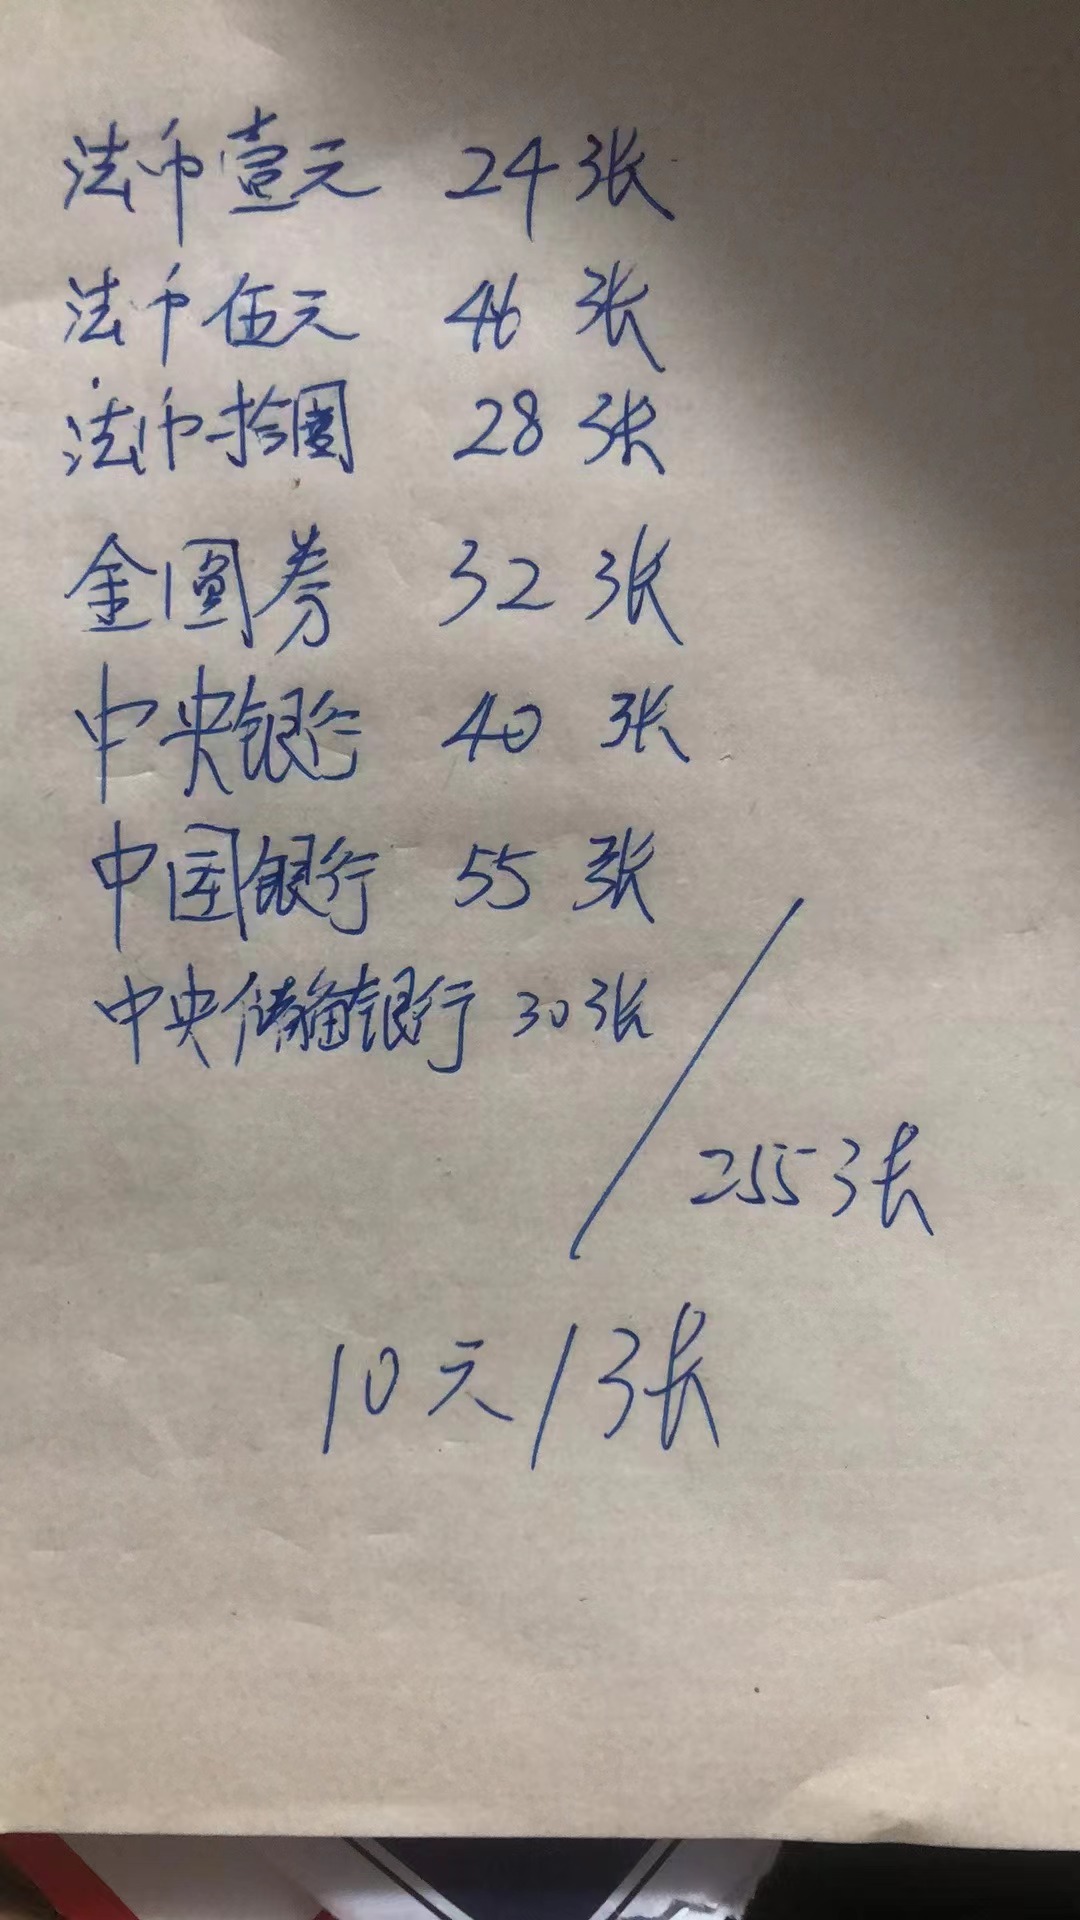 法币壹元 24张
法币伍元 46张
法币拾圆 28张
金圆券 32张
中央银行 40张
中国银行 55张
中央储备银行 30张
255张
10元/张